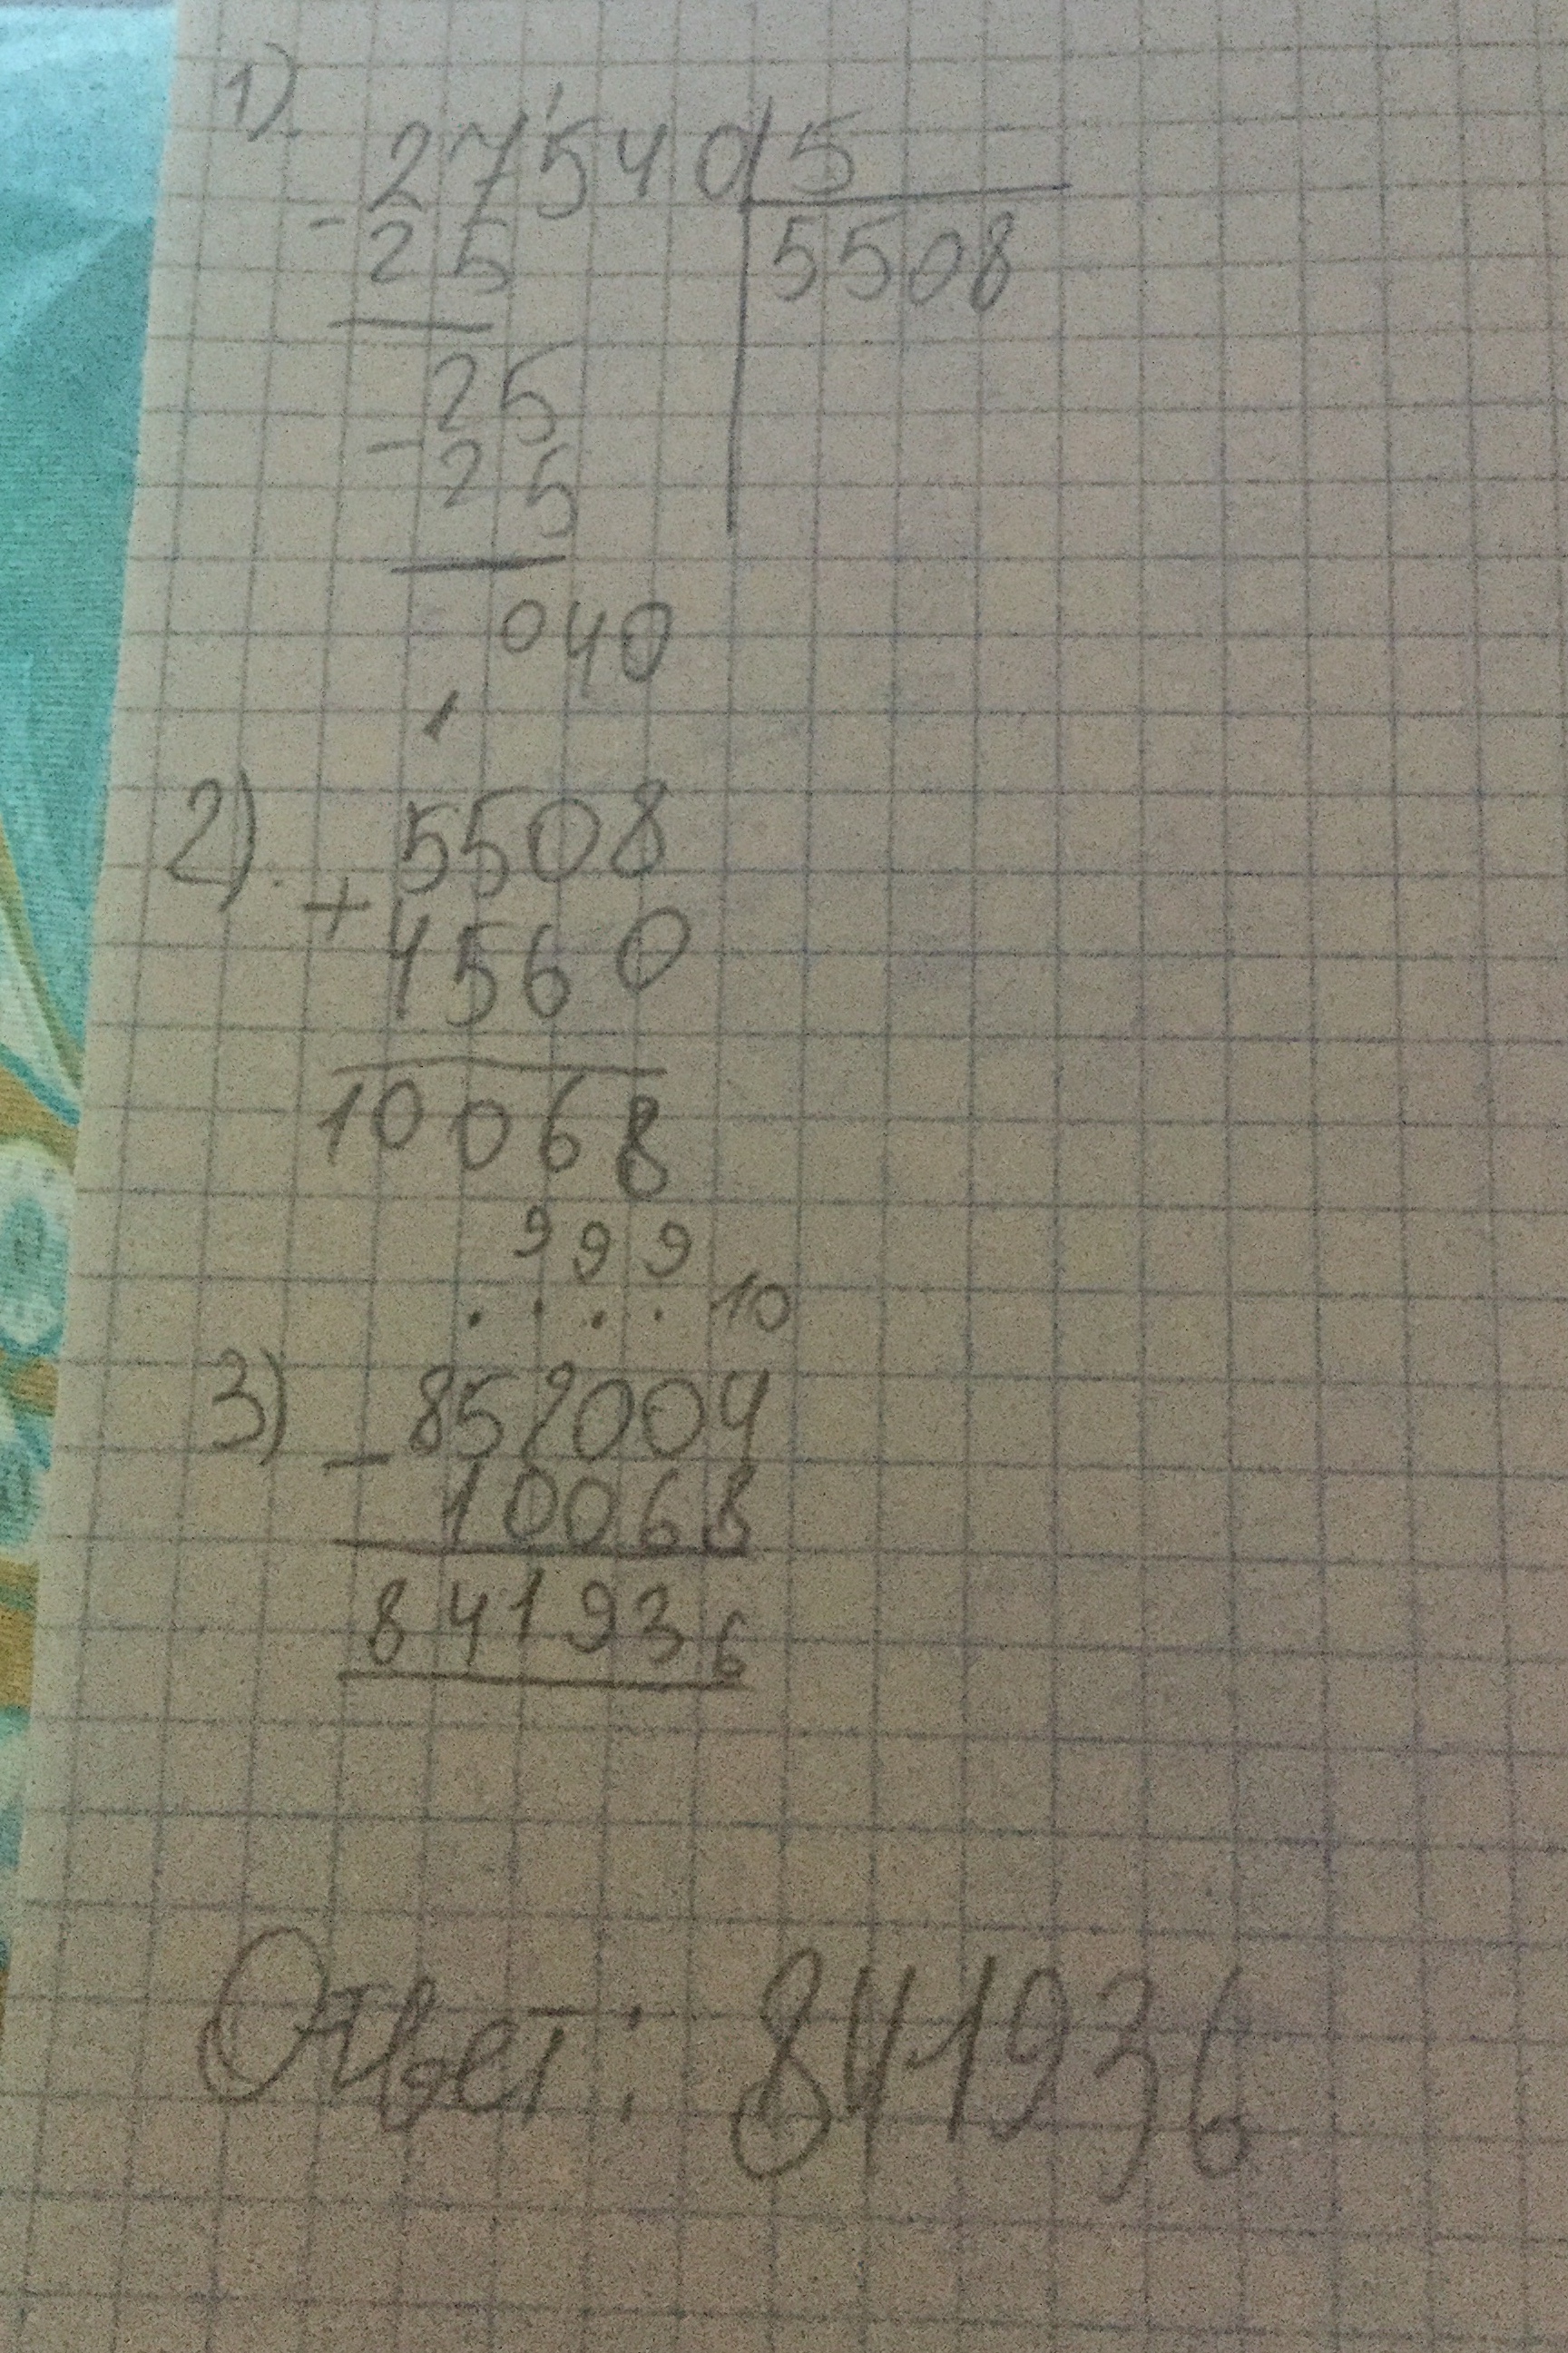 1).
27540 5
- 25 5508
25
- 25
040
2). 5508
+ 4560
10068
9 9 9
. . . . 10
3) 852004
- 10068
841936
Ответ: 841936